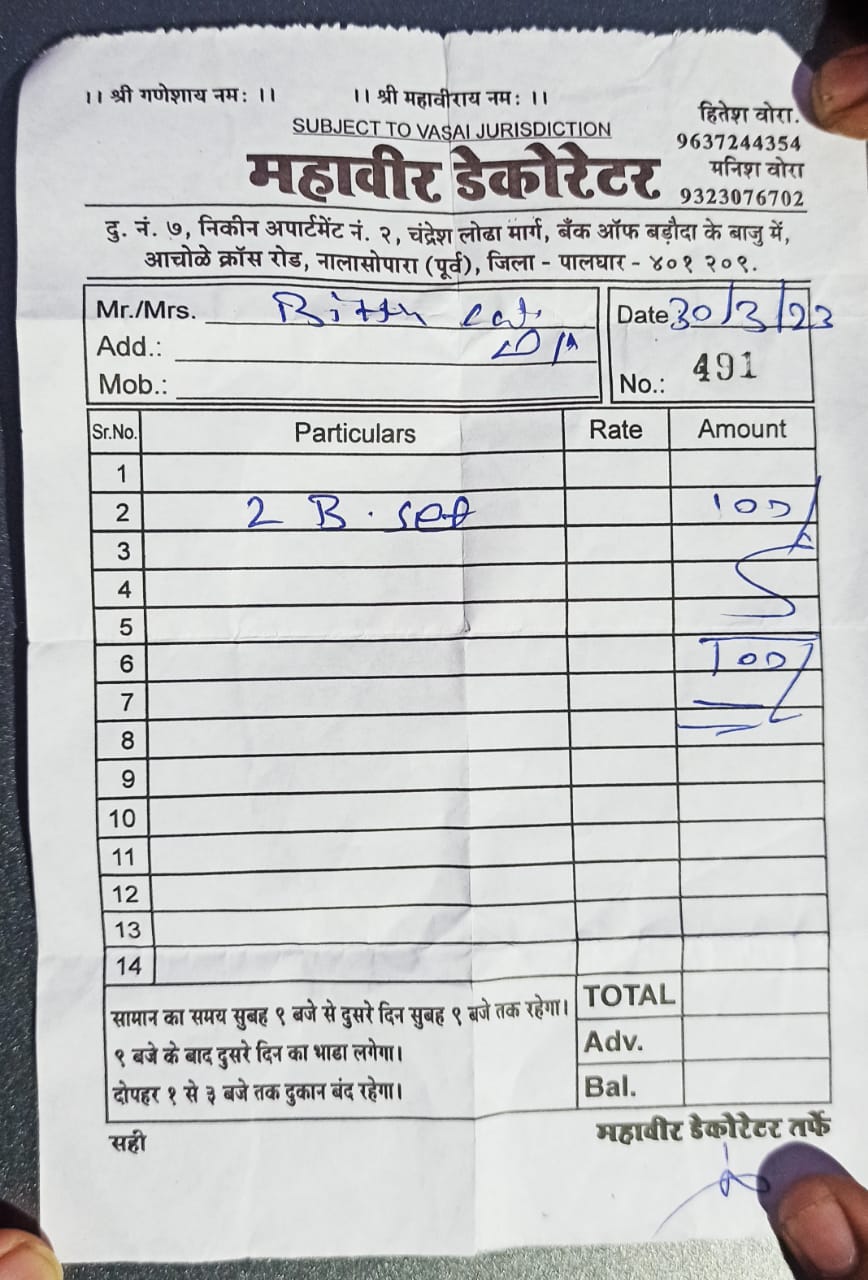 ।। श्री गणेशाय नमः ।। ।। श्री महावीराय नमः ।।
SUBJECT TO VASAI JURISDICTION
हितेश वोरा.
9637244354
मनिश वोरा
9323076702
महावीर डेकोरेटर
दु. नं. ७, निकीन अपार्टमेंट नं. २, चंद्रेश लोढा मार्ग, बँक ऑफ बड़ौदा के बाजु में,
आचोळे क्रॉस रोड, नालासोपारा (पूर्व), जिला - पालघर - ४०१ २०९.
Mr./Mrs.
Date 30/3/23
Add.:
Mob.:
No.: 491
Sr.No. Particulars Rate Amount
1
2 2 B. set 100/
3
4
5
6 100/
7
8
9
10
11
12
13
14
सामान का समय सुबह ९ बजे से दुसरे दिन सुबह ९ बजे तक रहेगा।
९ बजे के बाद दुसरे दिन का भाडा लगेगा।
दोपहर १ से ३ बजे तक दुकान बंद रहेगा।
TOTAL
Adv.
Bal.
सही
महावीर डेकोरेटर तर्फे